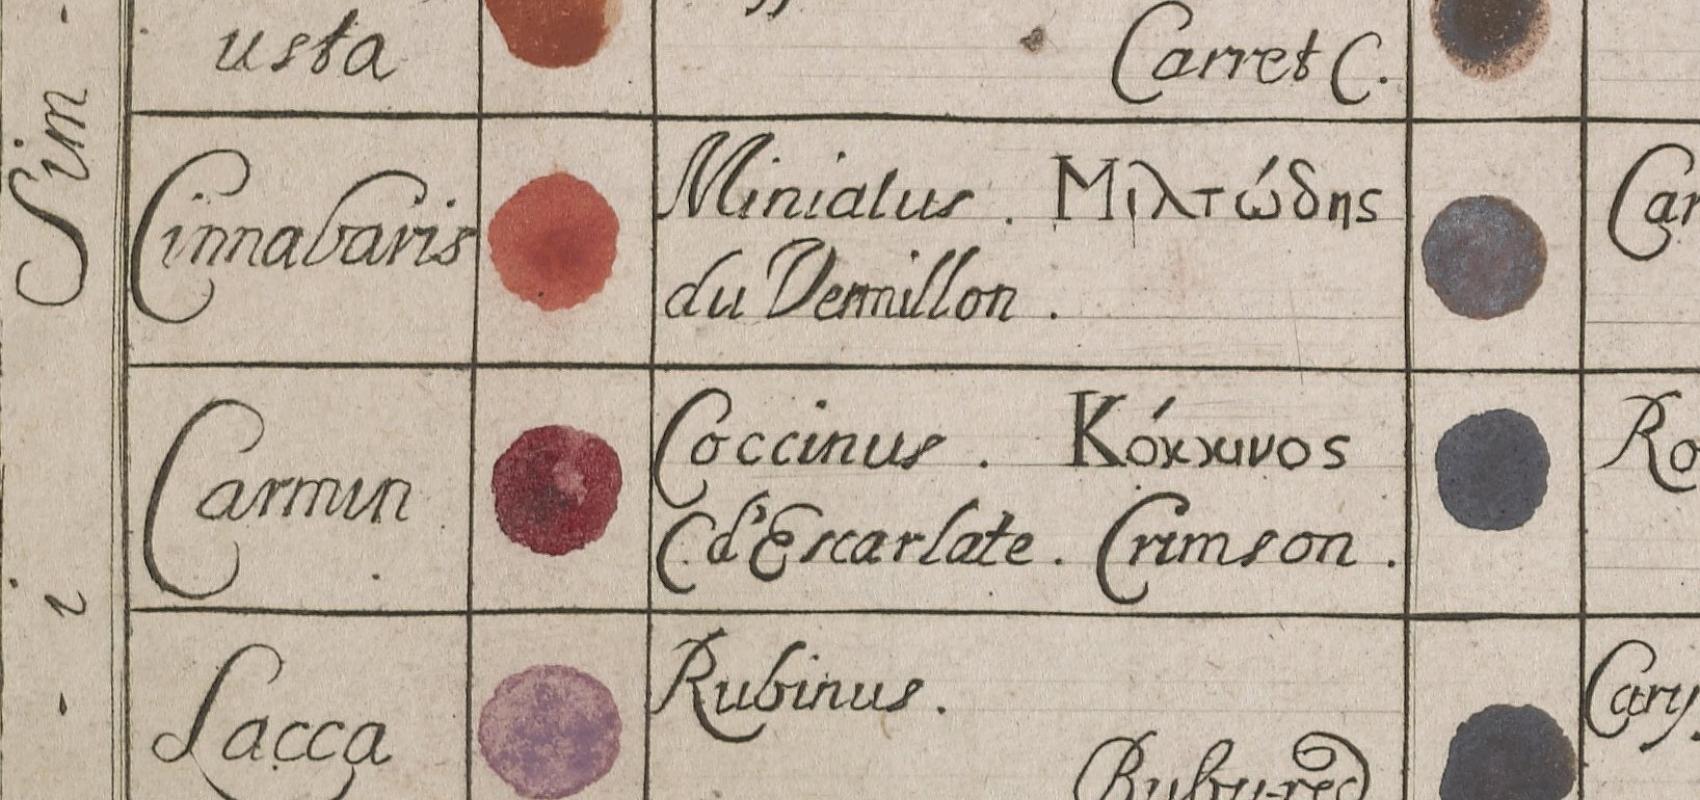 Sim - i -
usta
Carret C.
Cinnabaris
Miniatus. Μιλτώδης
du Vermillon.
Carmin
Coccinus. Κόκκινος
C d'Escarlate. Crimson.
Lacca
Rubinus.
Ruby-red